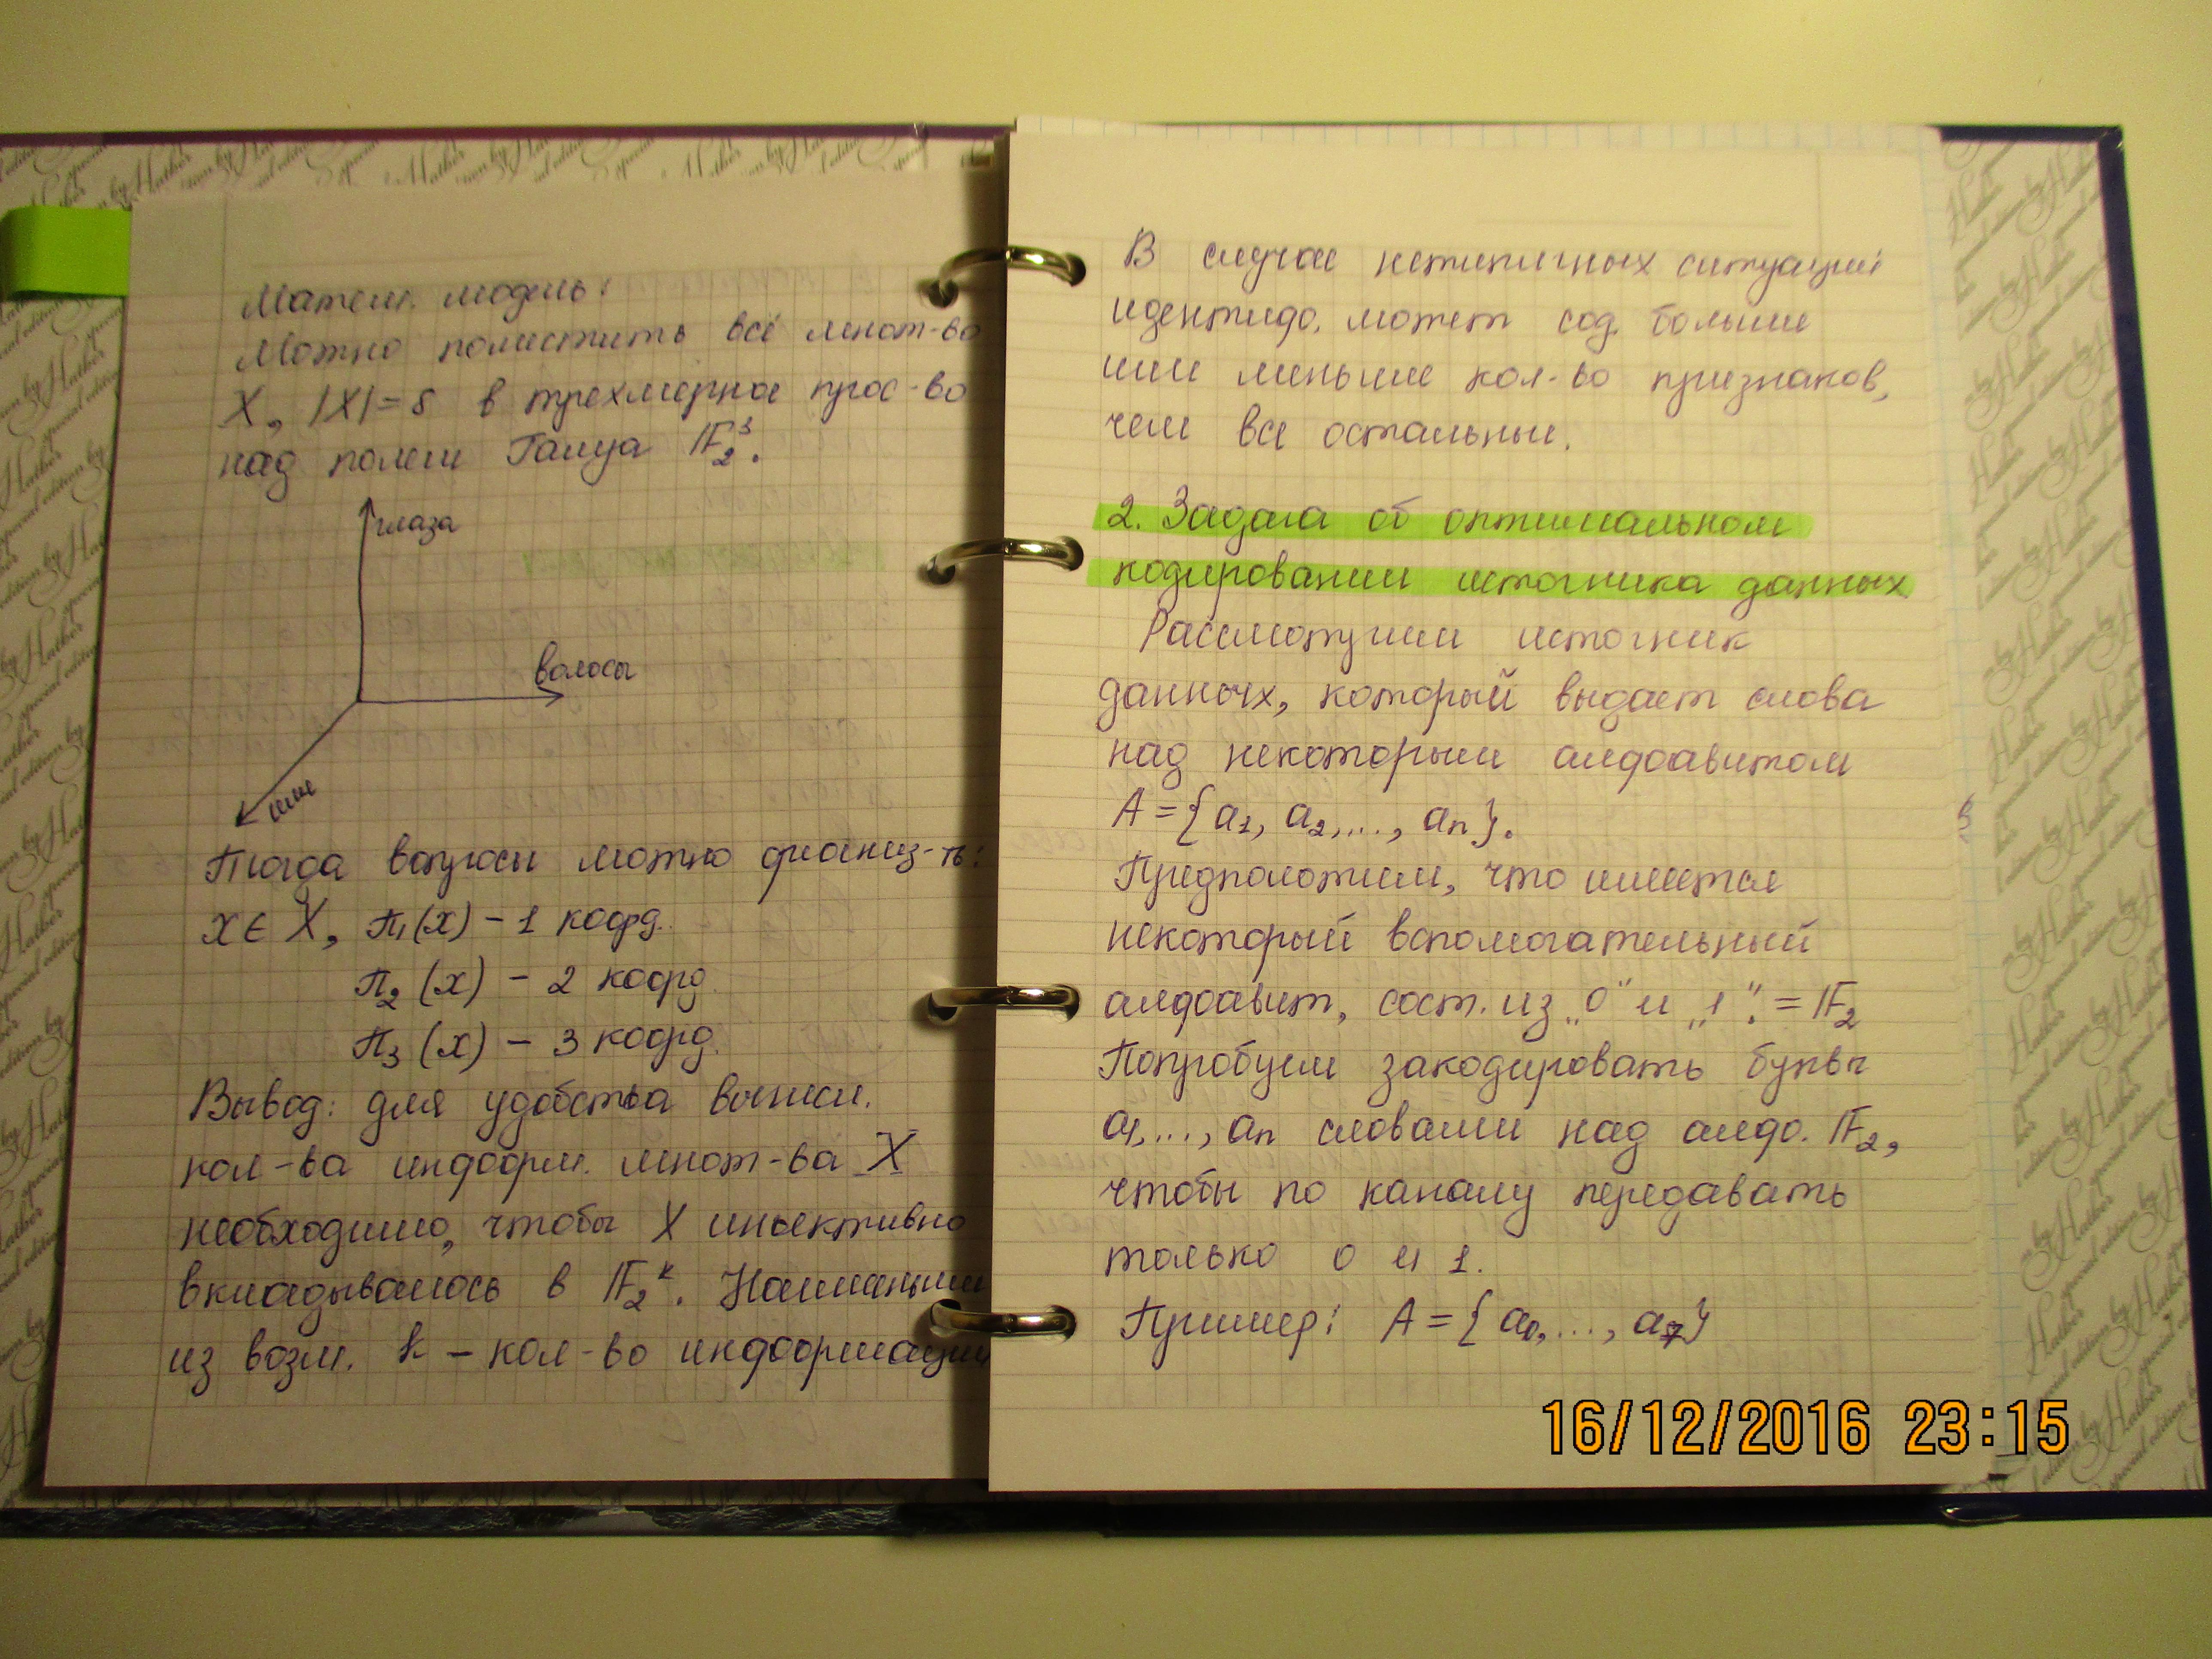 Матем. модель:
Можно поместить всё множ-во
X, |X|=8 в трехмерное прос-во
над полем Галуа 𝔽₂³.
глаза
волосы
Тогда вопросы можно
x ∈ X, π₁(x) – 1 коорд.
π₂(x) – 2 коорд.
π₃(x) – 3 коорд.
Вывод: для удобства вычисл.
кол-ва информ. множ-ва X
необходимо, чтобы X инъективно
вкладывалось в 𝔽₂ᵏ. Наименьшии
из возм. k – кол-во информации
В случае нетипичных ситуаций
идентиф. может сод. больше
или меньше кол-во признаков,
чем все остальные.
2. Задача об оптимальном
кодировании источника данных
Рассмотрим источник
данных, который выдает слова
над некоторым алфавитом
A = {a₁, a₂, ..., aₙ}.
Предположим, что имеется
некоторый вспомогательный
алфавит, сост. из „0“ и „1“. = 𝔽₂
Попробуем закодировать буквы
a₁, ..., aₙ словами над алф. 𝔽₂,
чтобы по каналу передавать
только 0 и 1.
Пример: A = {a₀, ..., a₇}
16/12/2016 23:15